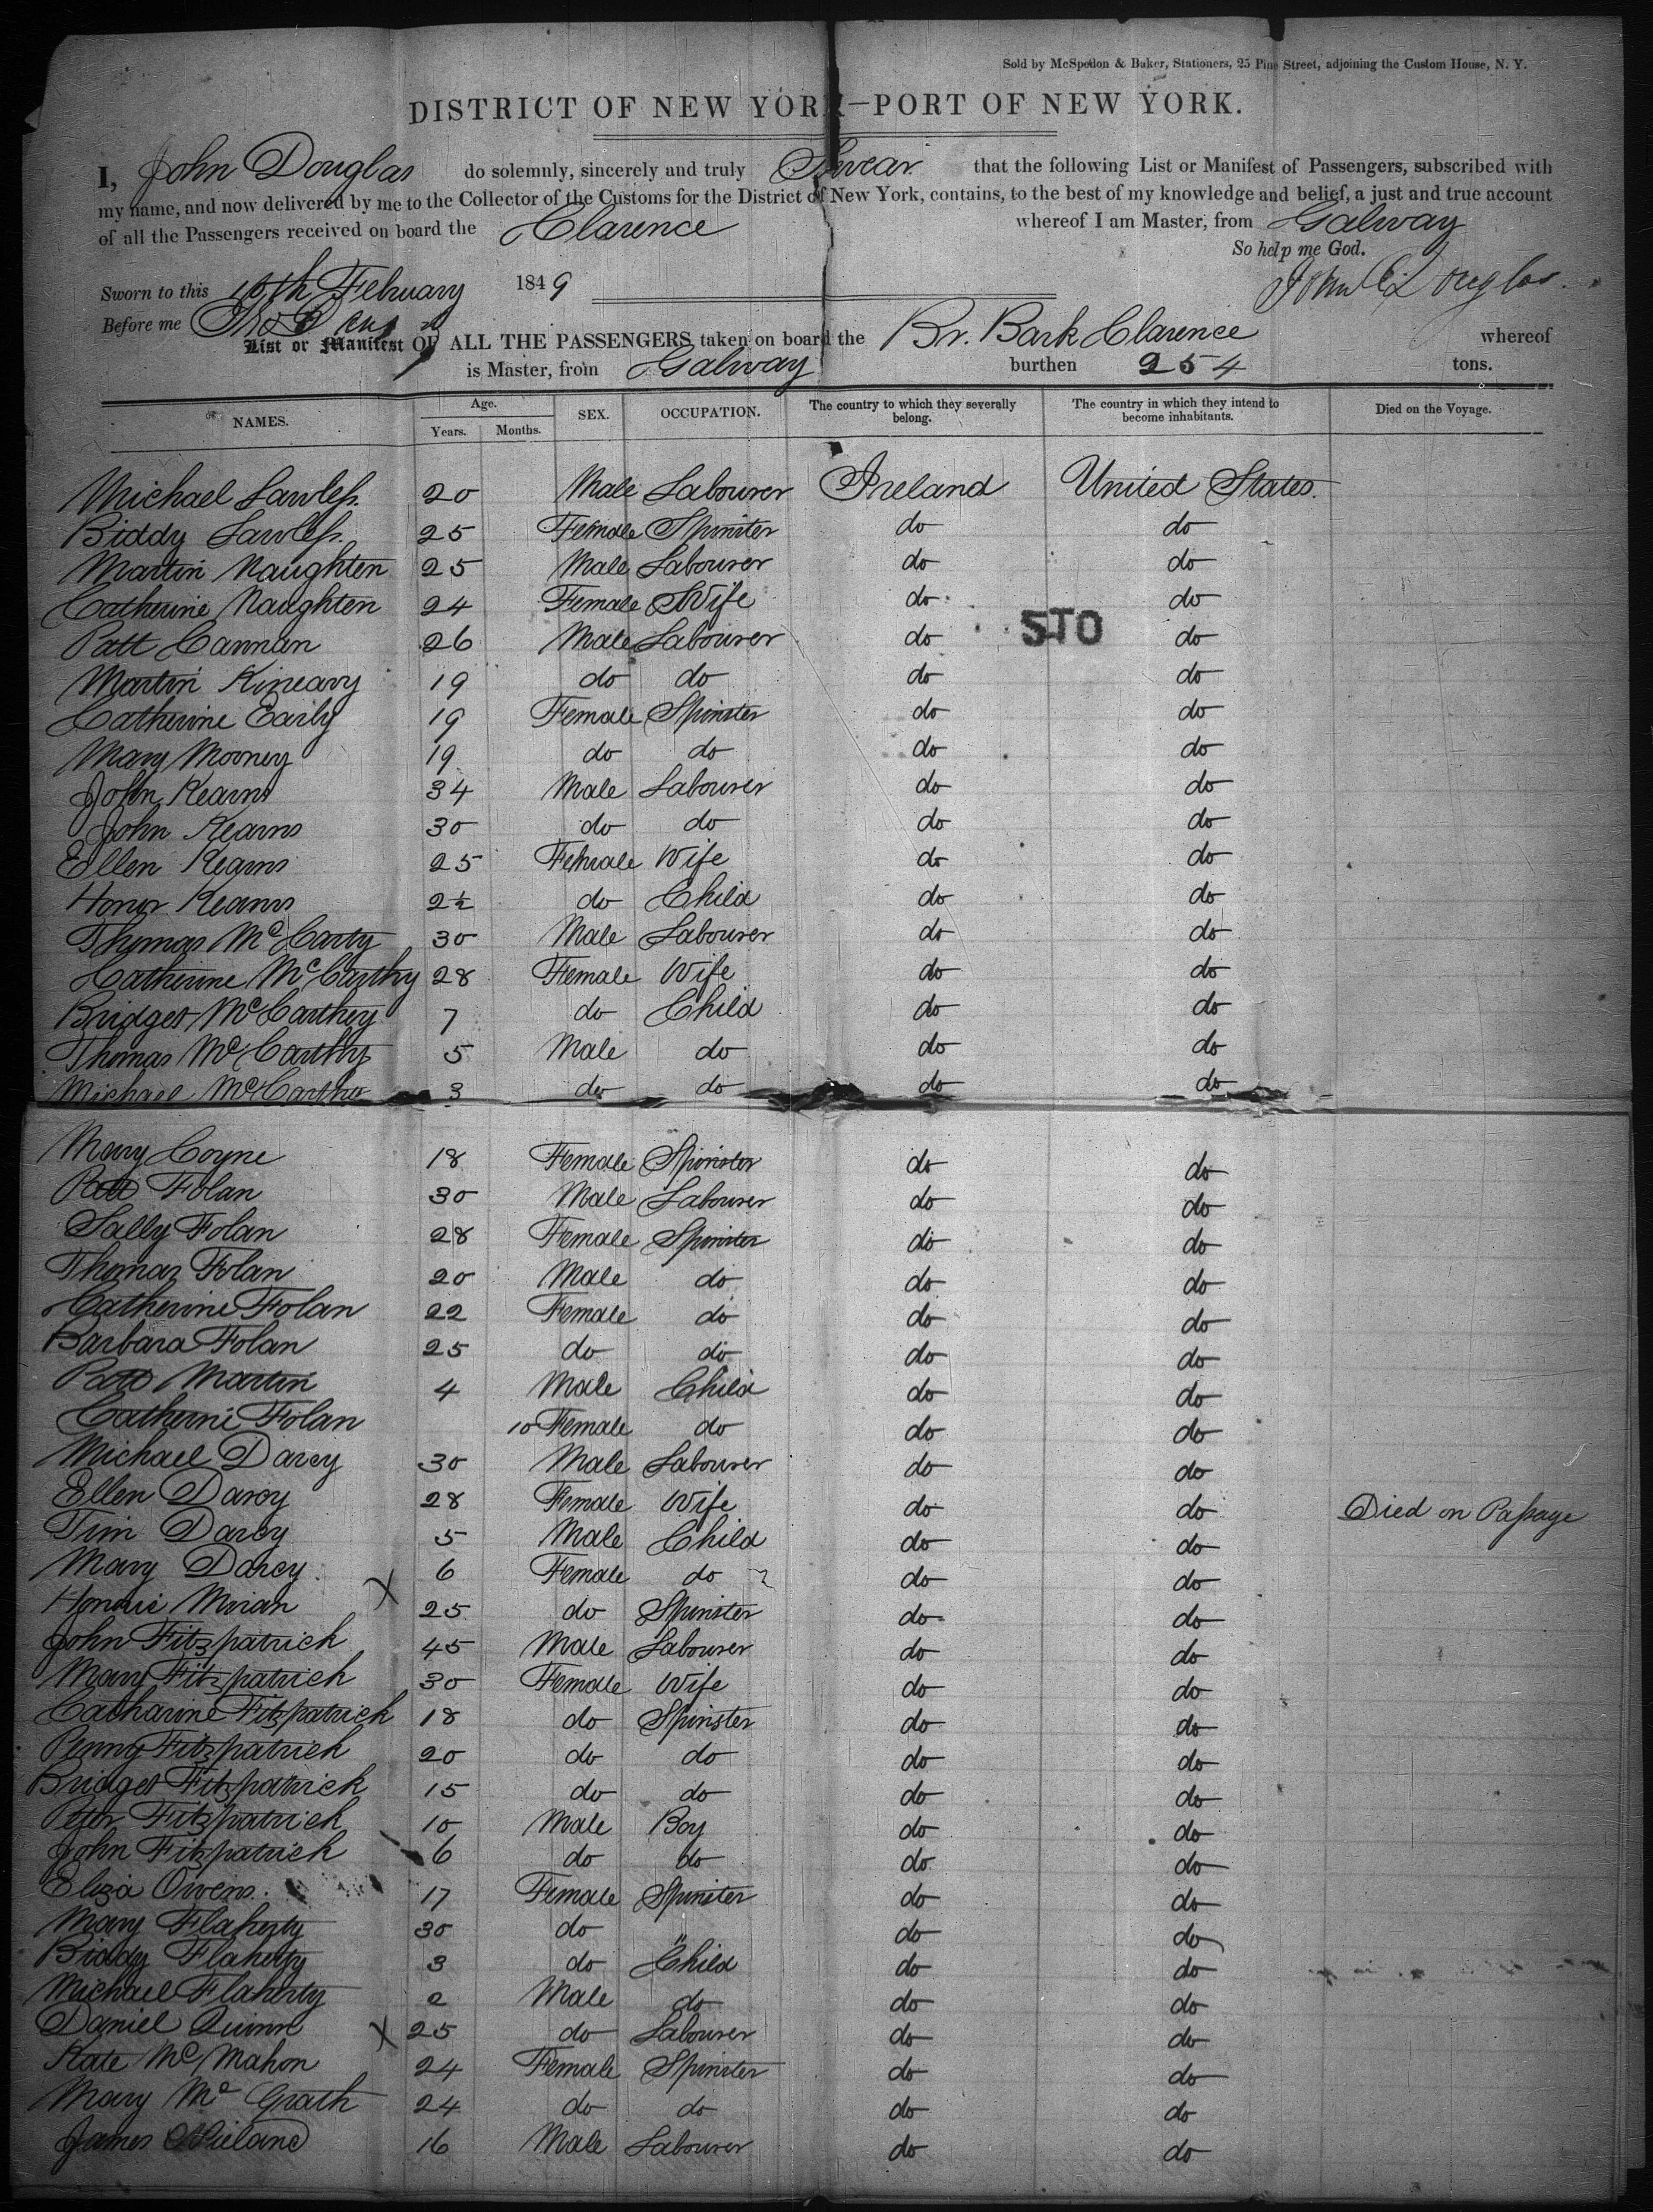 Sold by McSpedon & Baker, Stationers, 25 Pine Street, adjoining the Custom House, N. Y.
DISTRICT OF NEW YORK—PORT OF NEW YORK.
I, John Douglas do solemnly, sincerely and truly Swear that the following List or Manifest of Passengers, subscribed with
my name, and now delivered by me to the Collector of the Customs for the District of New York, contains, to the best of my knowledge and belief, a just and true account
of all the Passengers received on board the Clarence whereof I am Master, from Galway
So help me God.
Sworn to this 10th February 1849 John Douglas
Before me
List or Manifest OF ALL THE PASSENGERS taken on board the Br. Bark Clarence whereof
is Master, from Galway burthen 254 tons.
NAMES. Age. Years. Months. SEX. OCCUPATION. The country to which they severally belong. The country in which they intend to become inhabitants. Died on the Voyage.
Michael Lawless 20 Male Labourer Ireland United States.
Biddy Lawless 25 Female Spinster do do
Martin Naughten 25 Male Labourer do do
Catherine Naughten 24 Female Wife do do
STO
Patt Cannan 26 Male Labourer do do
Martin Kineavy 19 do do do do
Catherine Early 19 Female Spinster do do
Mary Mooney 19 do do do do
John Kearns 34 Male Labourer do do
John Kearns 30 do do do do
Ellen Kearns 25 Female Wife do do
Honor Kearns 2½ do Child do do
Thomas McCarty 30 Male Labourer do do
Catherine McCarthy 28 Female Wife do do
Bridget McCarthey 7 do Child do do
Thomas McCarthy 5 Male do do do
Michael McCarthy 3 do do do do
Mary Coyne 18 Female Spinster do do
Patt Folan 30 Male Labourer do do
Sally Folan 28 Female Spinster do do
Thomas Folan 20 Male do do do
Catherine Folan 22 Female do do do
Barbara Folan 25 do do do do
Patt Martin 4 Male Child do do
Catherine Folan 10 Female do do do
Michael Darcy 30 Male Labourer do do
Ellen Darcy 28 Female Wife do do Died on Passage
Tim Darcy 5 Male Child do do
Mary Darcy 6 Female do do do
Honorie Mirian X 25 do Spinster do do
John Fitzpatrick 45 Male Labourer do do
Mary Fitzpatrick 30 Female Wife do do
Catharine Fitzpatrick 18 do Spinster do do
Penny Fitzpatrick 20 do do do do
Bridget Fitzpatrick 15 do do do do
Peter Fitzpatrick 10 Male Boy do do
John Fitzpatrick 6 do do do do
Eliza Owens 17 Female Spinster do do
Mary Flaherty 30 do " do do
Biddy Flaherty 3 do Child do do
Michael Flaherty 2 Male do do do
Daniel Quinn X 25 do Labourer do do
Kate McMahon 24 Female Spinster do do
Mary McGrath 24 do do do do
James 16 Male Labourer do do